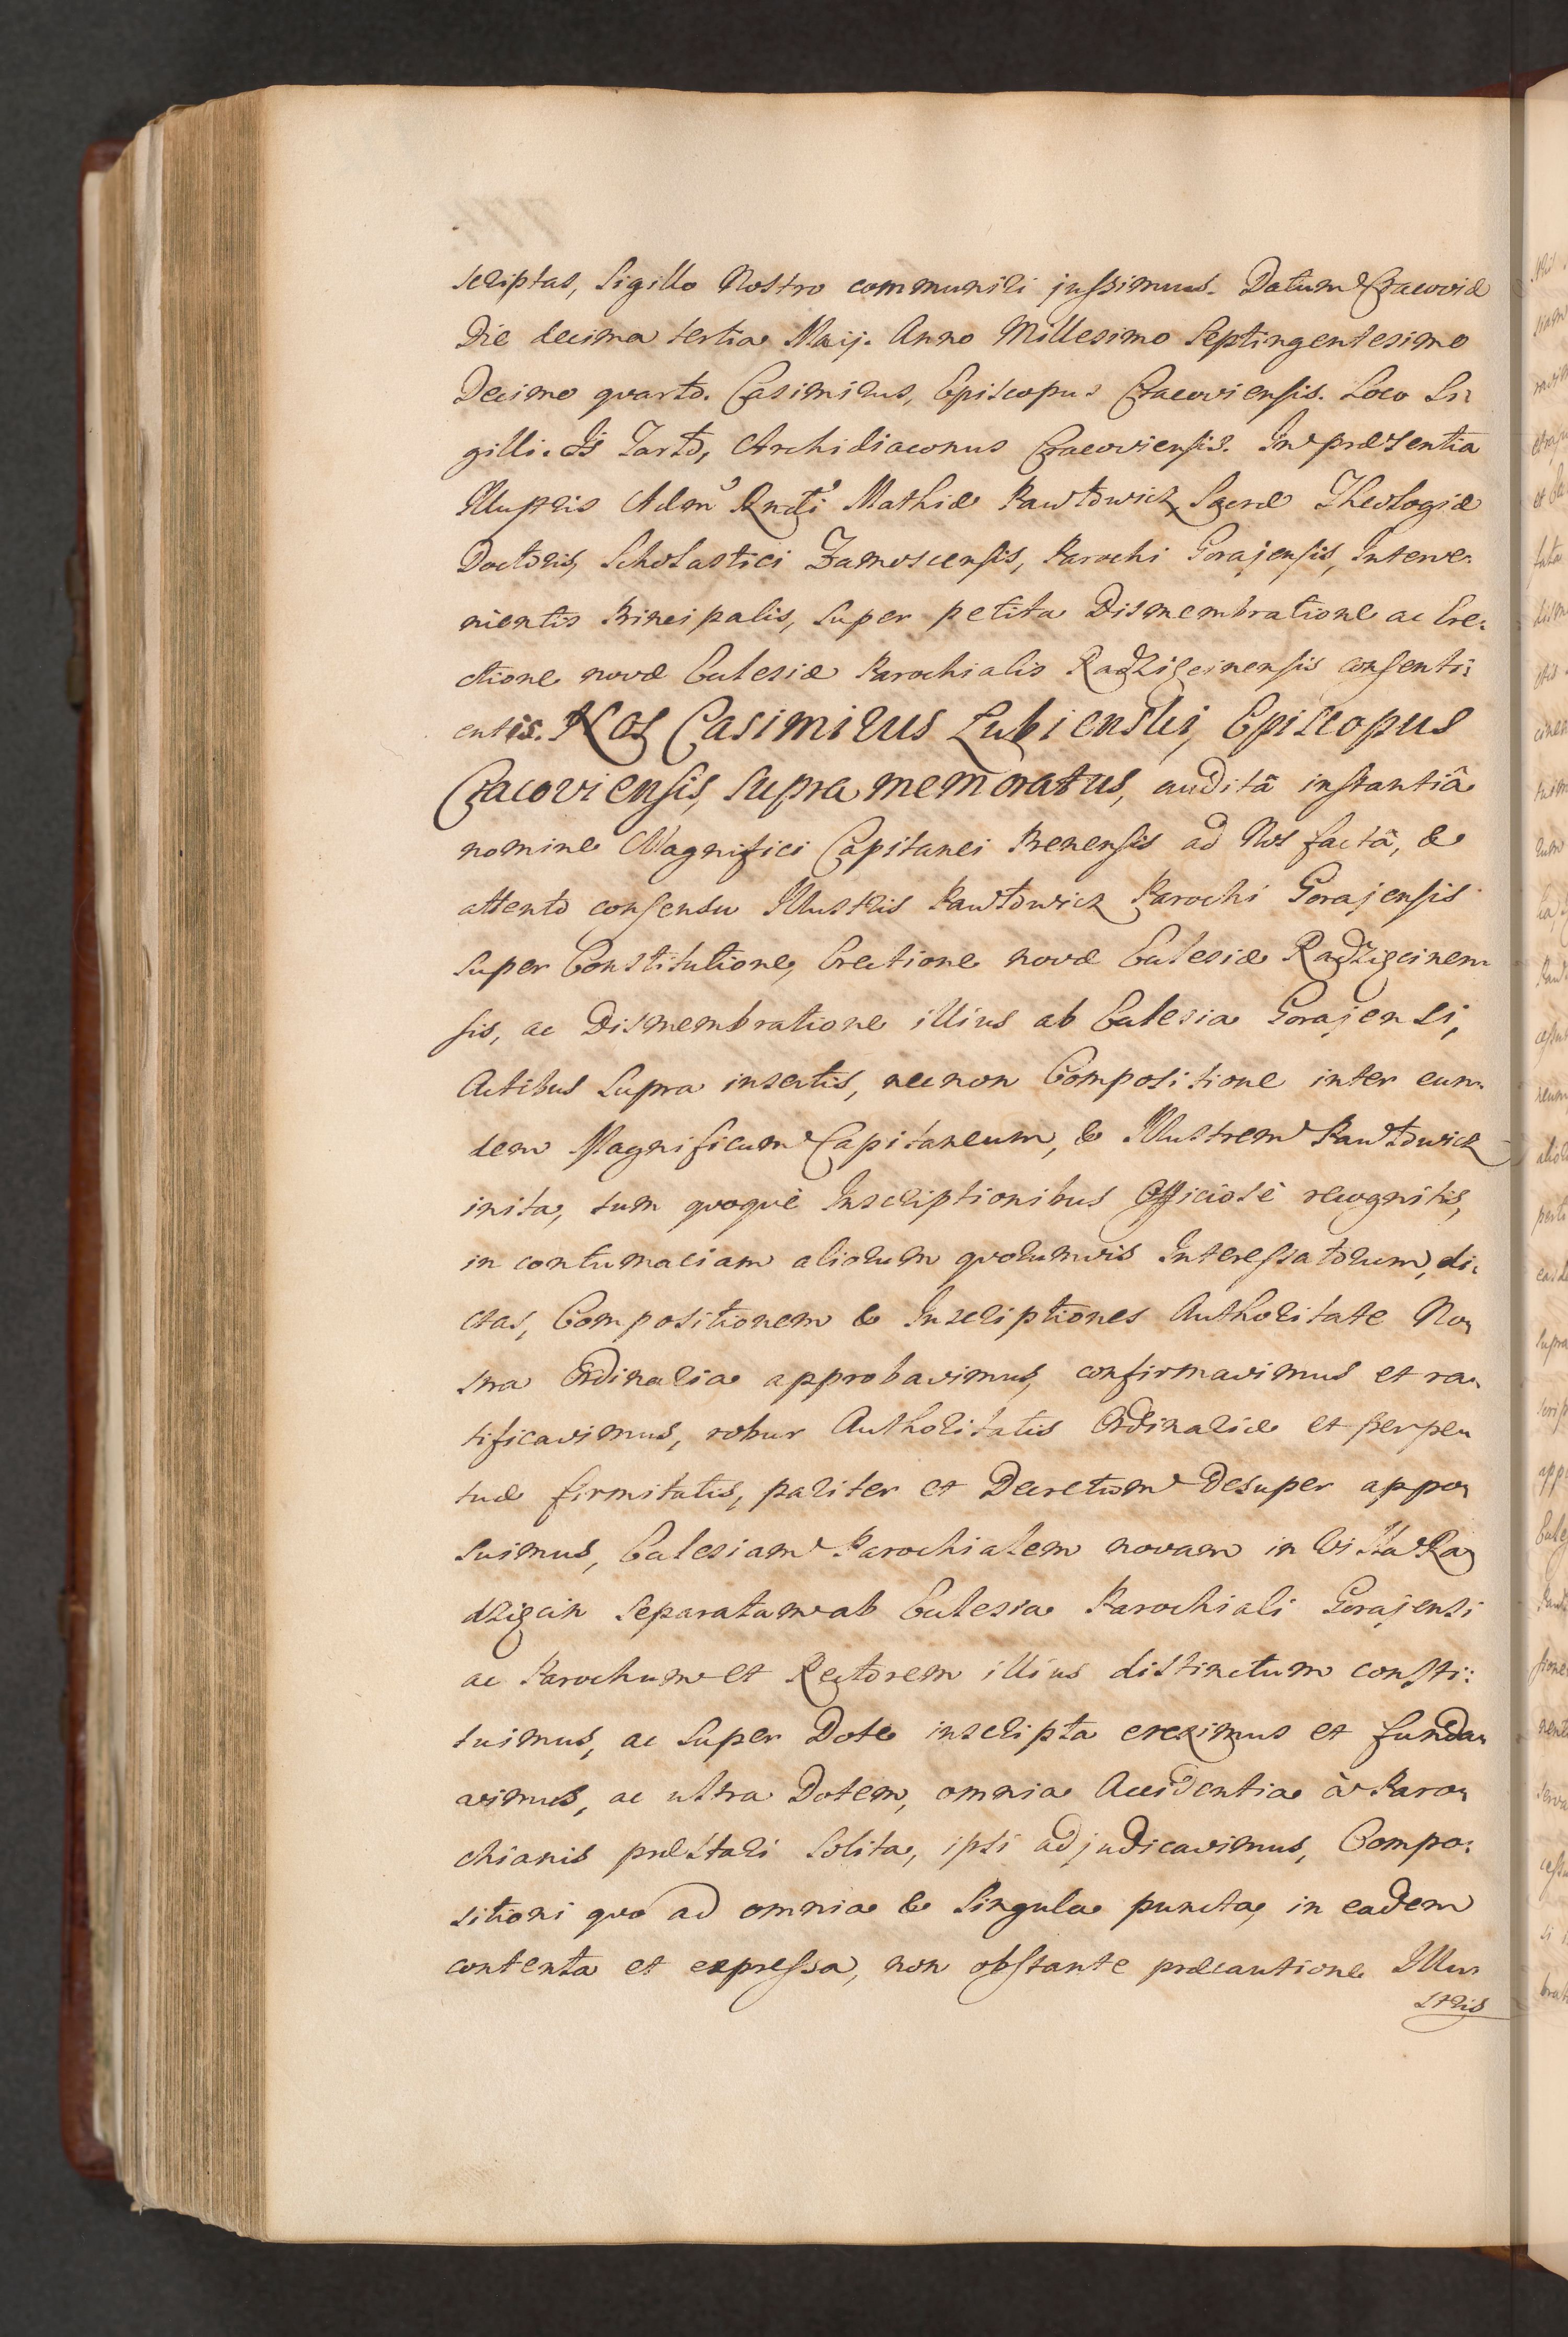 scriptas, Sigillo Nostro communiri jussimus. Datum Cracoviæ
Die decima tertia Maij. Anno Millesimo Septingentesimo
Decimo quarto. Casimirus, Episcopus Cracoviensis. Loco Si:
gilli. Tarło, Archidiaconus Cracoviensis. In præsentia
Illustris Adm Rndi Mathiæ Pawłowicz, Sacræ Theologiæ
Doctoris, Scholastici Zamoscensis, Parochi Gorajensis, Interve:
nientis Principalis, super petita Dismembratione ac Ere:
ctione novæ Ecclesiæ Parochialis Radzięcinensis consenti:
entis. Nos Casimirus Łubienski, Episcopus
Cracoviensis, supra memoratus, auditâ instantiâ
nomine Magnifici Capitanei Prenensis ad Nos factâ, &
attento consensu Illustris Pawłowicz Parochi Gorajensis
super Constitutione, Erectione novæ Ecclesiæ Radzięcinen:
sis, ac Dismembratione illius ab Ecclesia Gorajensi,
Actibus supra insertis, necnon Compositione inter eun:
dem Magnificum Capitaneum, & Illustrem Pawłowicz
inita, tum quoquè Inscriptionibus Officiosè recognitis,
in contumaciam aliorum quorumvis Interessatorum, di:
ctas, Compositionem & Inscriptiones Authoritate No:
stra Ordinaria approbavimus, confirmavimus et ra:
tificavimus, robur Authoritatis Ordinariæ et perpe:
tuæ firmitatis, pariter et Decretum desuper appo:
suimus, Ecclesiam Parochialem novam in Villa Ra:
dzięcin separatam ab Ecclesia Parochiali Gorajensi
ac Parochum et Rectorem illius distinctum consti:
tuimus, ac super Dote inscripta ereximus et funda:
vimus, ac ultra Dotem, omnia Accidentia à Paro:
chianis præstari solita, ipsi adjudicavimus, Compo:
sitioni quo ad omnia & singula puncta, in eadem
contenta et expressa, non obstante præcautione Illu:
stris